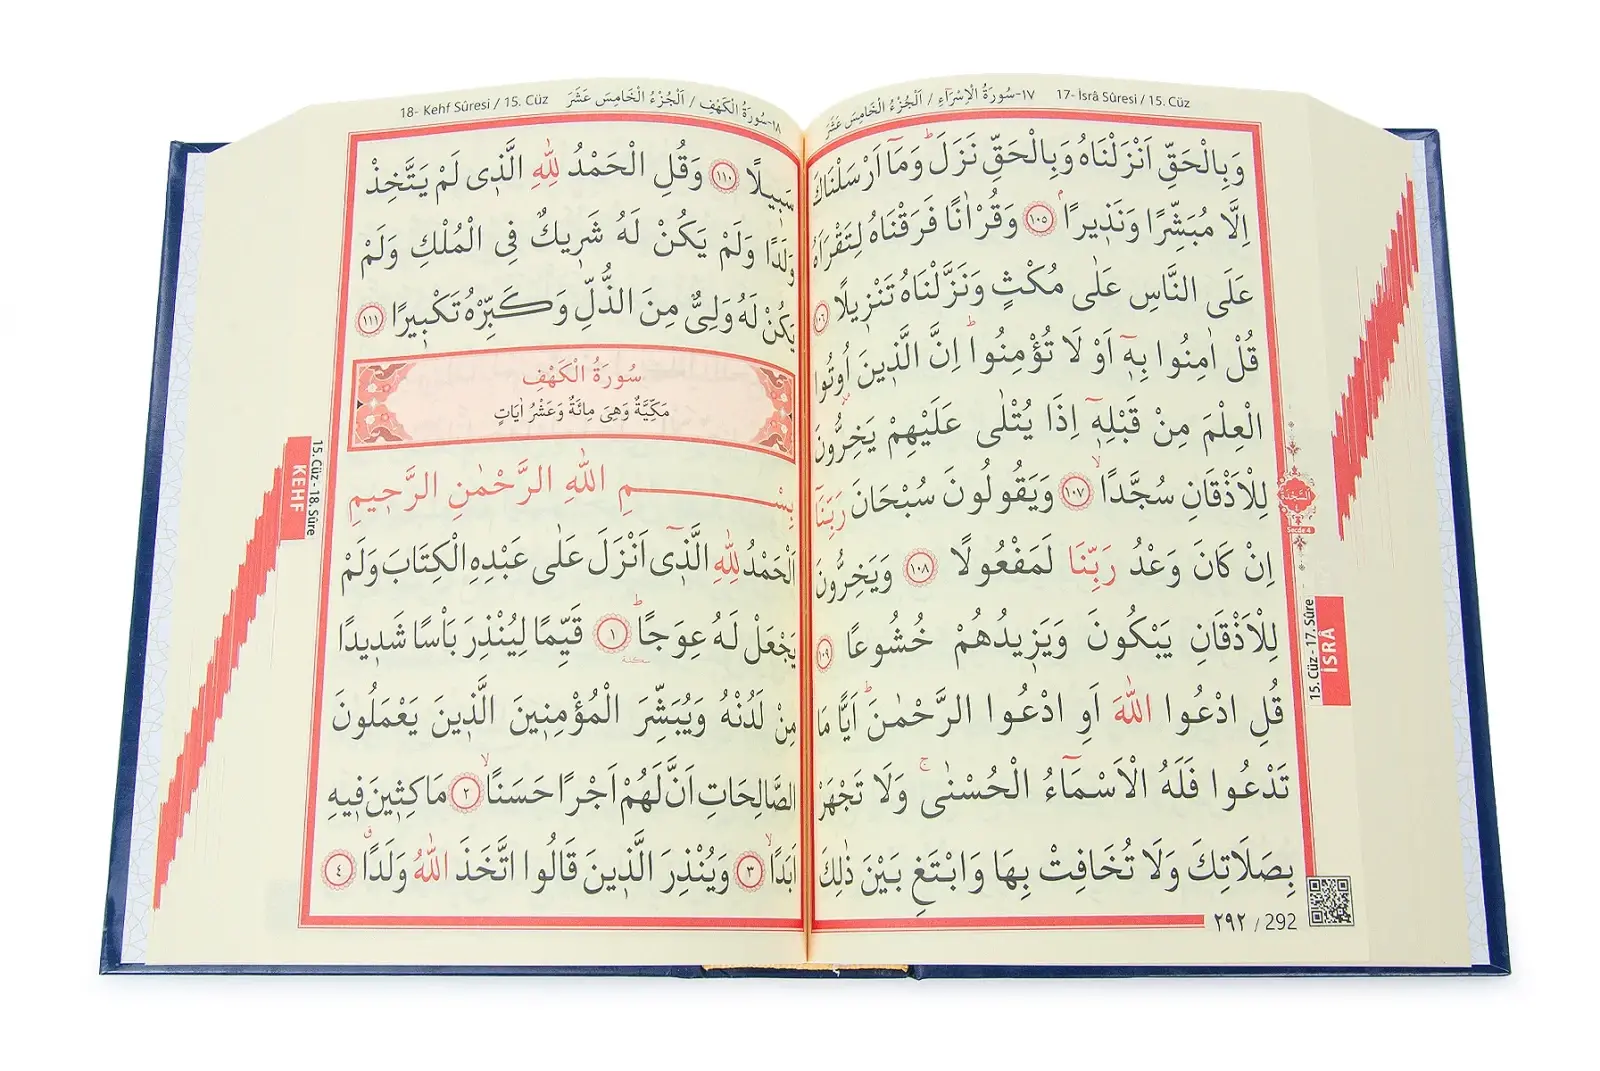 17- İsrâ Sûresi / 15. Cüz ١٧-سُورَةُ الْاِسْرَاءِ / اَلْجُزْءُ الْخَامِسَ عَشَرَ
وَبِالْحَقِّ اَنْزَلْنَاهُ وَبِالْحَقِّ نَزَلَۜ وَمَٓا اَرْسَلْنَاكَ
اِلَّا مُبَشِّرًا وَنَذ۪يرًاۢ ﴿١٠٥﴾ وَقُرْاٰنًا فَرَقْنَاهُ لِتَقْرَاَهُ
عَلَى النَّاسِ عَلٰى مُكْثٍ وَنَزَّلْنَاهُ تَنْز۪يلًا ﴿١٠٦﴾
قُلْ اٰمِنُوا بِه۪ٓ اَوْ لَا تُؤْمِنُواۜ اِنَّ الَّذ۪ينَ اُو۫تُوا
الْعِلْمَ مِنْ قَبْلِه۪ٓ اِذَا يُتْلٰى عَلَيْهِمْ يَخِرُّونَ
لِلْاَذْقَانِ سُجَّدًاۙ ﴿١٠٧﴾ وَيَقُولُونَ سُبْحَانَ رَبِّنَٓا
اِنْ كَانَ وَعْدُ رَبِّنَا لَمَفْعُولًا ﴿١٠٨﴾ وَيَخِرُّونَ
لِلْاَذْقَانِ يَبْكُونَ وَيَز۪يدُهُمْ خُشُوعًا ﴿١٠٩﴾
قُلِ ادْعُوا اللّٰهَ اَوِ ادْعُوا الرَّحْمٰنَۜ اَيًّا مَا
تَدْعُوا فَلَهُ الْاَسْمَٓاءُ الْحُسْنٰىۚ وَلَا تَجْهَرْ
بِصَلَاتِكَ وَلَا تُخَافِتْ بِهَا وَابْتَغِ بَيْنَ ذٰلِكَ
٢٩٢ / 292
السَّجْدَة
Secde 4
15. Cüz - 17. Sûre
İSRÂ
18- Kehf Sûresi / 15. Cüz ١٨-سُورَةُ الْكَهْفِ / اَلْجُزْءُ الْخَامِسَ عَشَرَ
سَب۪يلًا ﴿١١٠﴾ وَقُلِ الْحَمْدُ لِلّٰهِ الَّذ۪ى لَمْ يَتَّخِذْ
وَلَدًا وَلَمْ يَكُنْ لَهُ شَر۪يكٌ فِى الْمُلْكِ وَلَمْ
يَكُنْ لَهُ وَلِىٌّ مِنَ الذُّلِّ وَكَبِّرْهُ تَكْب۪يرًا ﴿١١١﴾
سُورَةُ الْكَهْفِ
مَكِّيَّةٌ وَهِىَ مِائَةٌ وَعَشْرُ اٰيَاتٍ
بِسْمِ اللّٰهِ الرَّحْمٰنِ الرَّح۪يمِ
اَلْحَمْدُ لِلّٰهِ الَّذ۪ٓى اَنْزَلَ عَلٰى عَبْدِهِ الْكِتَابَ وَلَمْ
يَجْعَلْ لَهُ عِوَجًاۜ ﴿١﴾ قَيِّمًا لِيُنْذِرَ بَاْسًا شَد۪يدًا
سكتة
مِنْ لَدُنْهُ وَيُبَشِّرَ الْمُؤْمِن۪ينَ الَّذ۪ينَ يَعْمَلُونَ
الصَّالِحَاتِ اَنَّ لَهُمْ اَجْرًا حَسَنًاۙ ﴿٢﴾ مَاكِث۪ينَ ف۪يهِ
اَبَدًاۙ ﴿٣﴾ وَيُنْذِرَ الَّذ۪ينَ قَالُوا اتَّخَذَ اللّٰهُ وَلَدًاۗ ﴿٤﴾
15. Cüz - 18. Sûre
KEHF